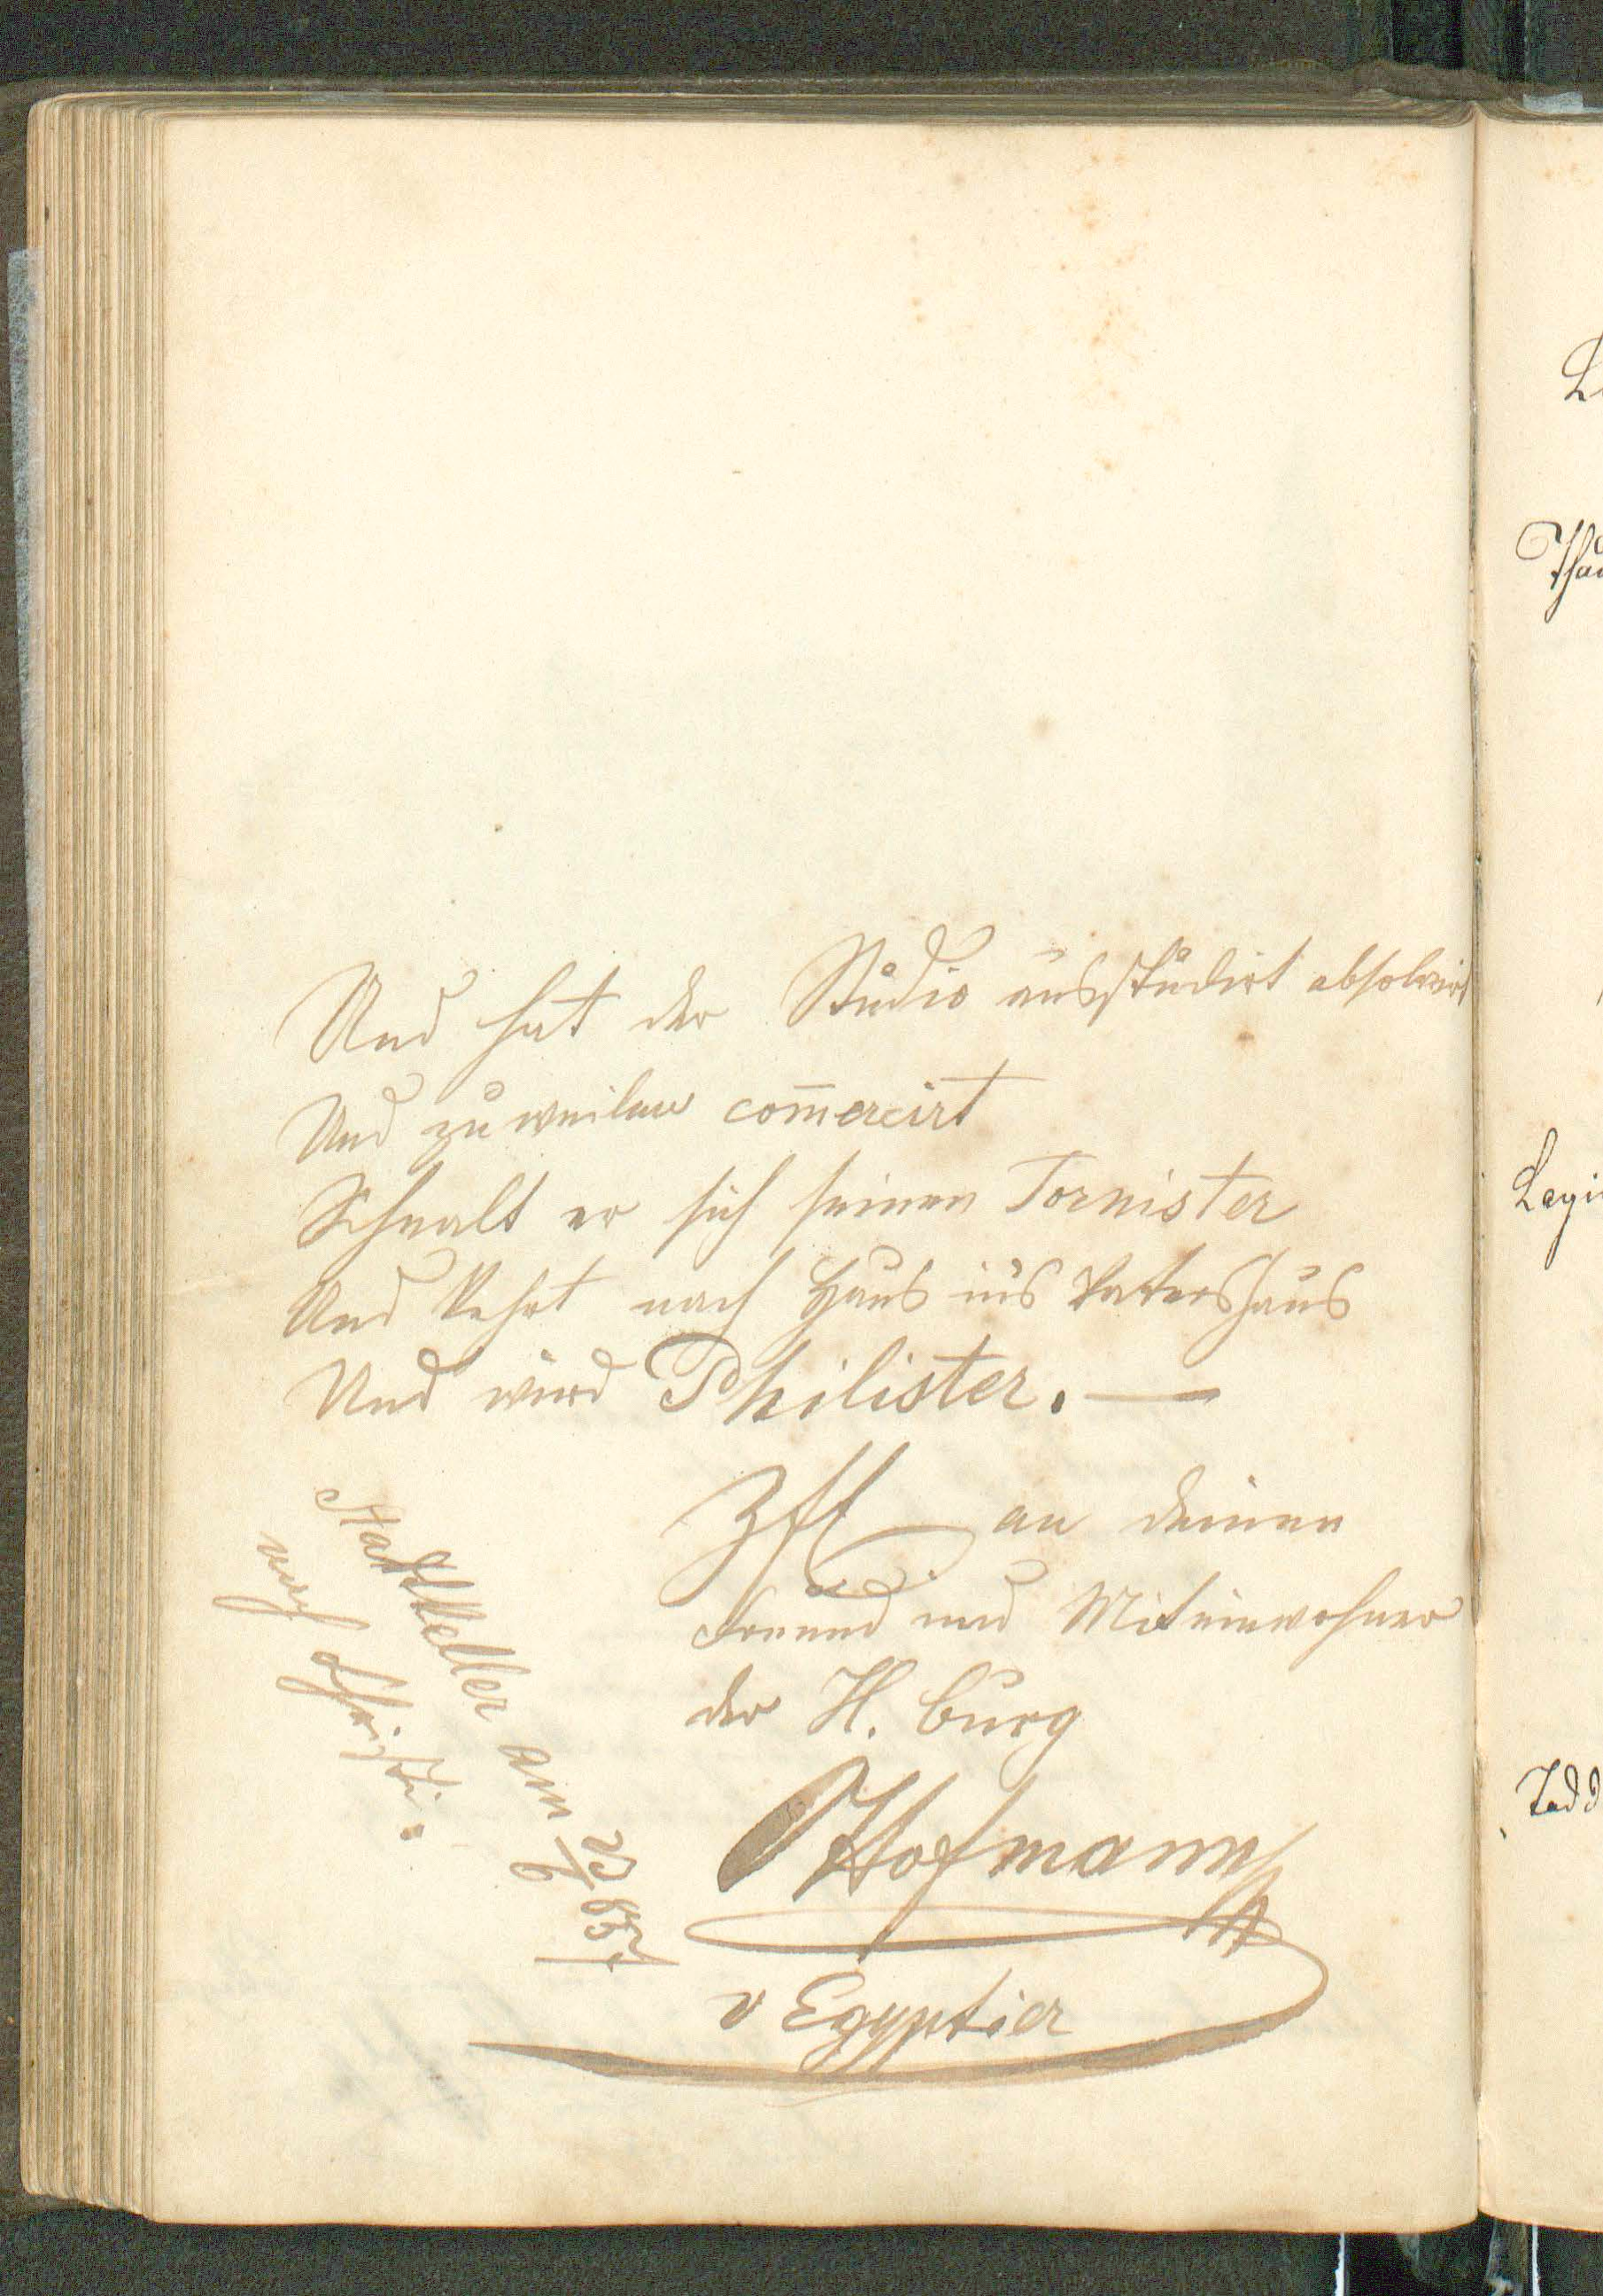 Und hat der Studio ausstudirt absolvirt
Und zuweilen com̅ercirt
Schnalt er sich seinen Tornister
Und kehrt nach Haus in's Vatershaus
Und wird Philister. —
Zftl an deinen
Freund und Miteinwohner
der H. burg
Hofmann
v Egyptier
Stadtkeller am
nach Christi.